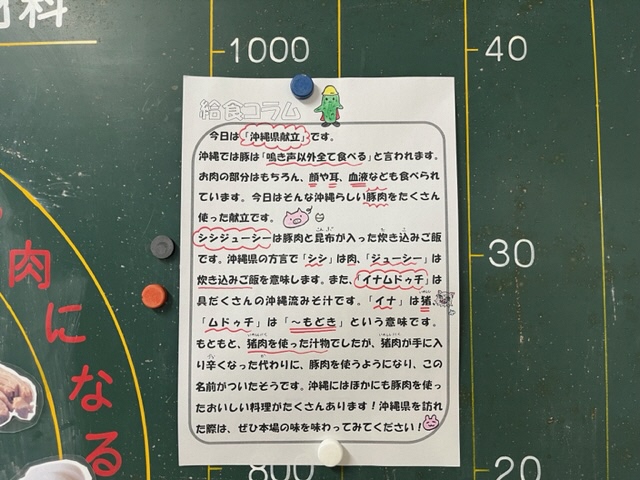 材料
1000
40
給食コラム
今日は「沖縄県献立」です。
沖縄では豚は「鳴き声以外全て食べる」と言われます。
お肉の部分はもちろん、顔や耳、血液なども食べられ
ています。今日はそんな沖縄らしい豚肉をたくさん
使った献立です。
シシジューシーは豚肉と昆布が入った炊き込みご飯
です。沖縄県の方言で「シシ」は肉、「ジューシー」は
炊き込みご飯を意味します。また、「イナムドゥチ」は
具だくさんの沖縄流みそ汁です。「イナ」は猪、
「ムドゥチ」は「～もどき」という意味です。
もともと、猪肉を使った汁物でしたが、猪肉が手に入
り辛くなった代わりに、豚肉を使うようになり、この
名前がついたそうです。沖縄にはほかにも豚肉を使っ
たおいしい料理がたくさんあります！沖縄県を訪れ
た際は、ぜひ本場の味を味わってみてください！
30
肉になる
800
20